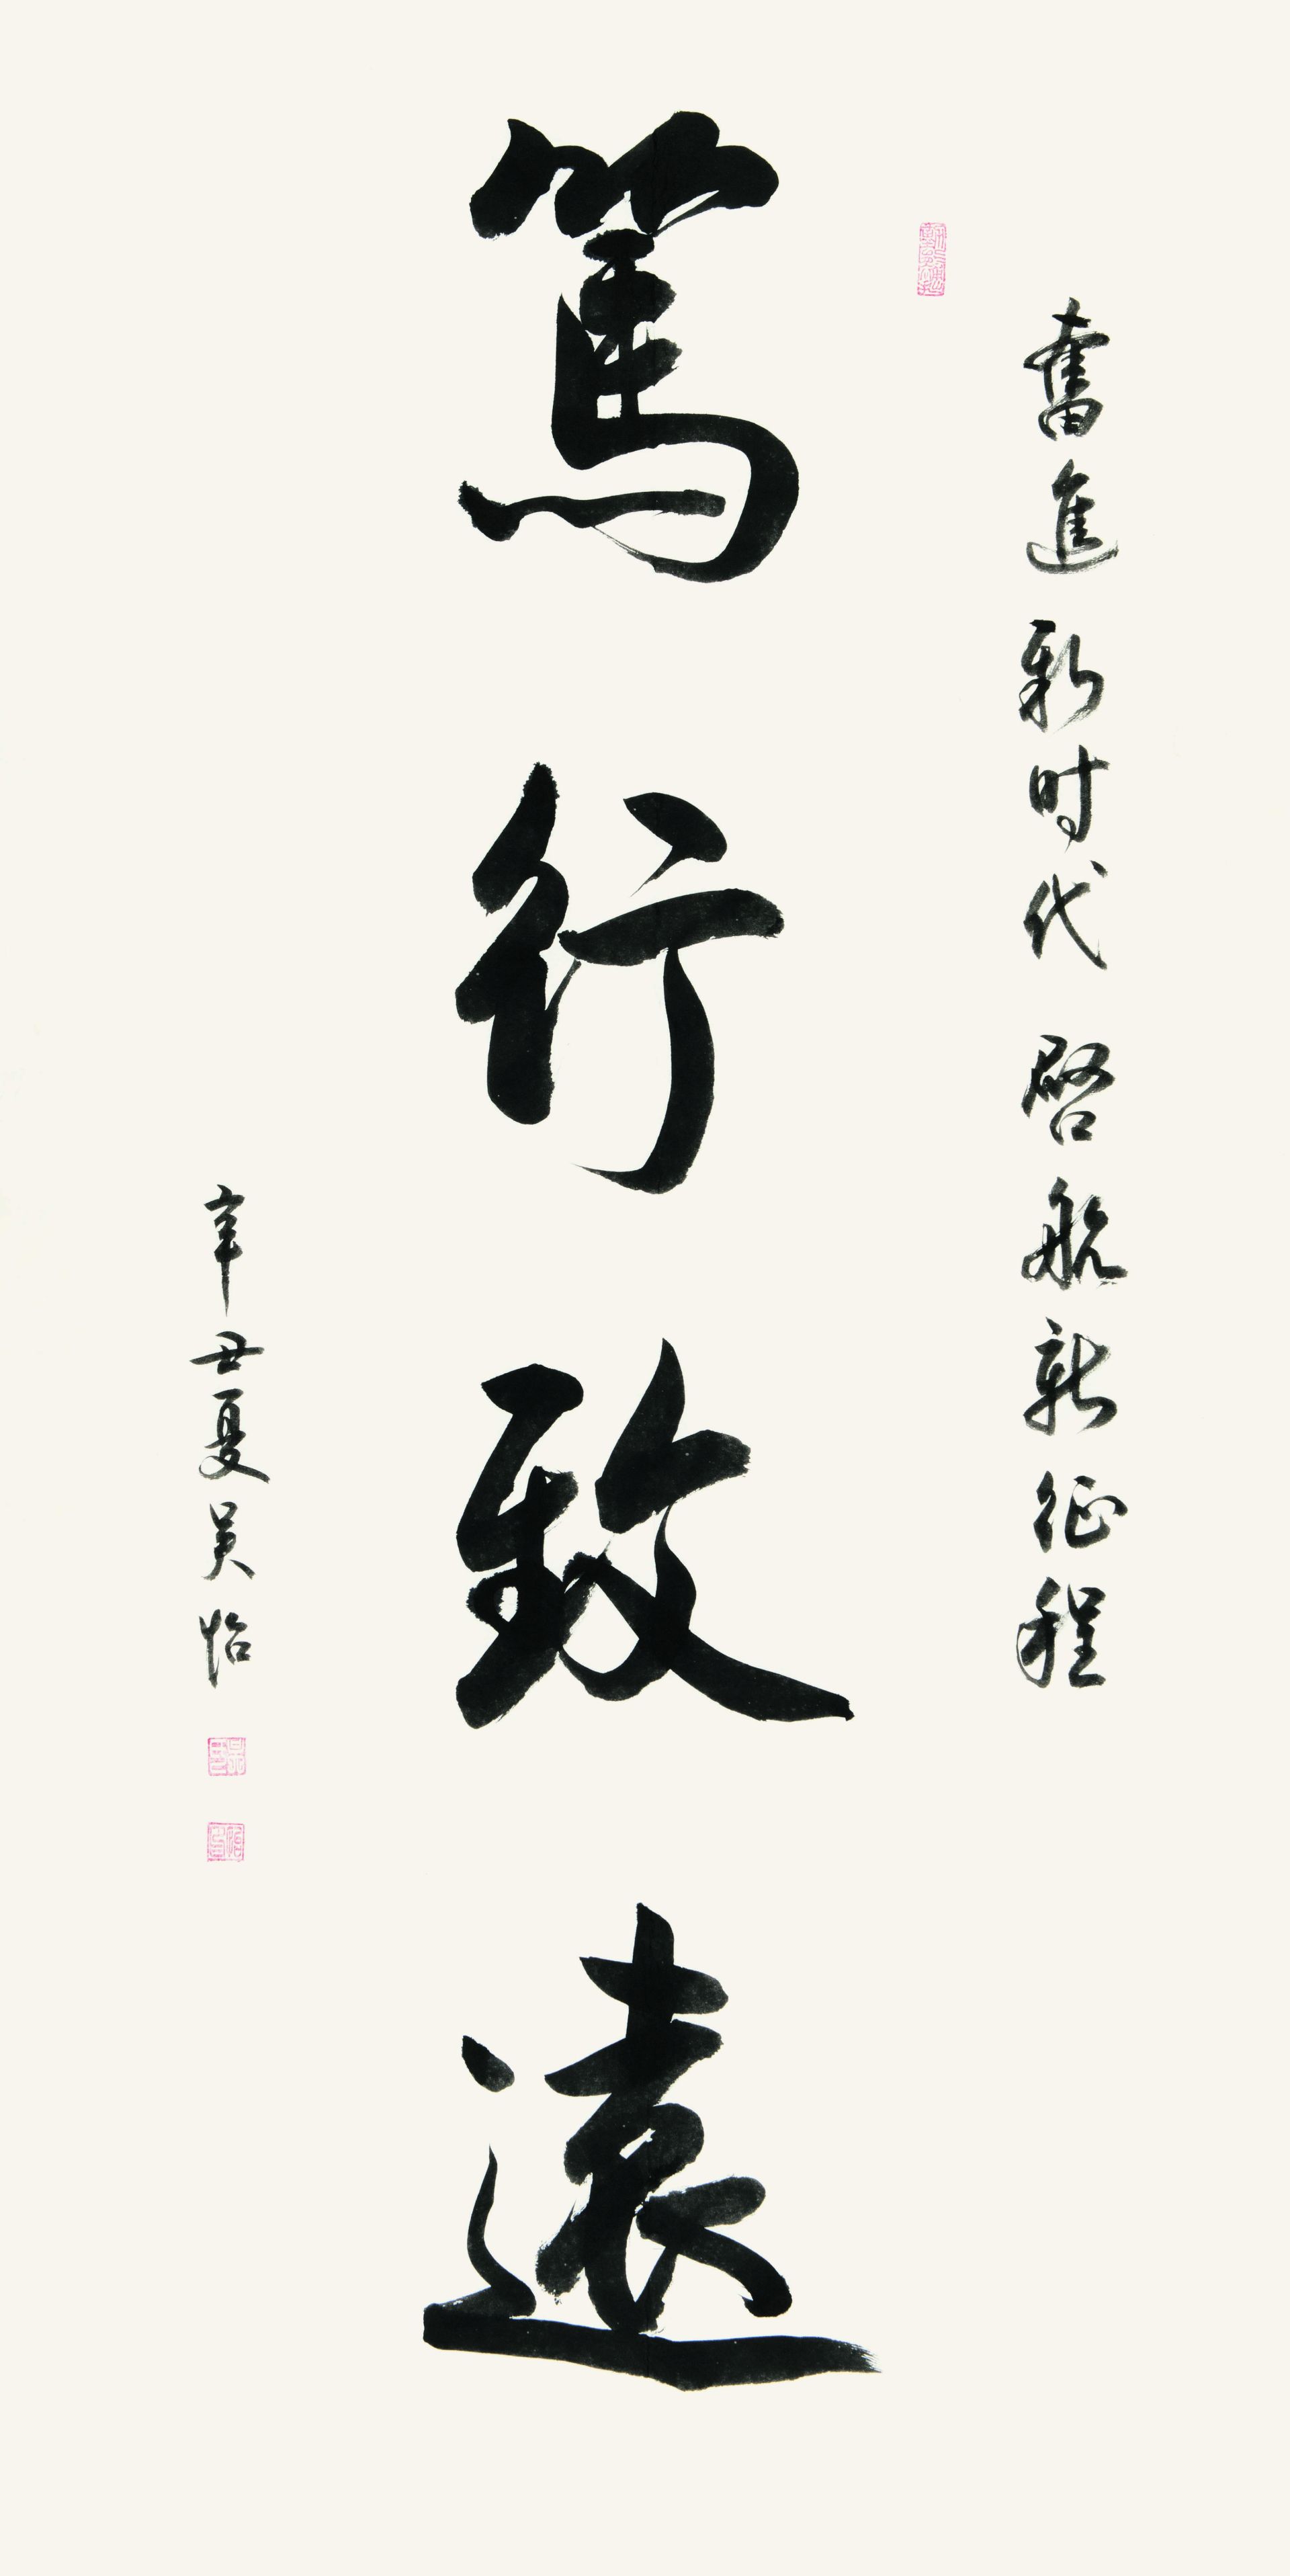 奮進新时代 啓航新征程
篤行致遠
辛丑夏吴怡